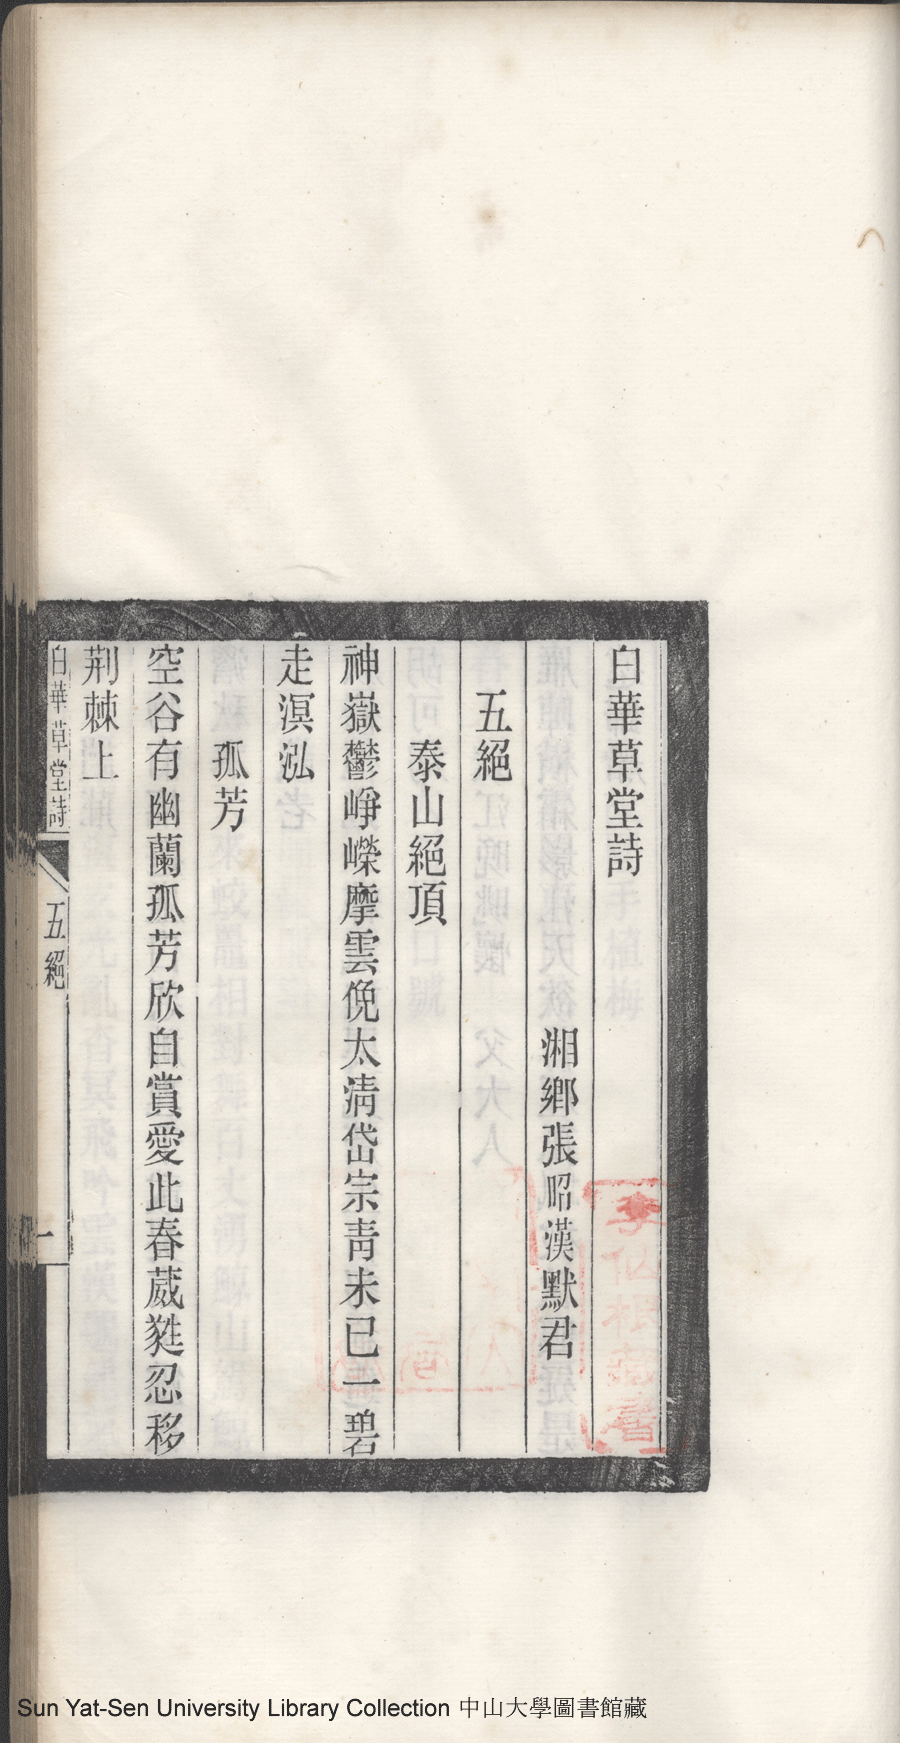 白華草堂詩
湘鄉張昭漢默君
五絕
泰山絕頂
神嶽鬱崢嶸摩雲俛太淸岱宗靑未已一碧
走溟泓
孤芳
空谷有幽蘭孤芳欣自賞愛此春葳蕤忍移
荆棘上
白華草堂詩
五絕
一
Sun Yat-Sen University Library Collection 中山大學圖書館藏